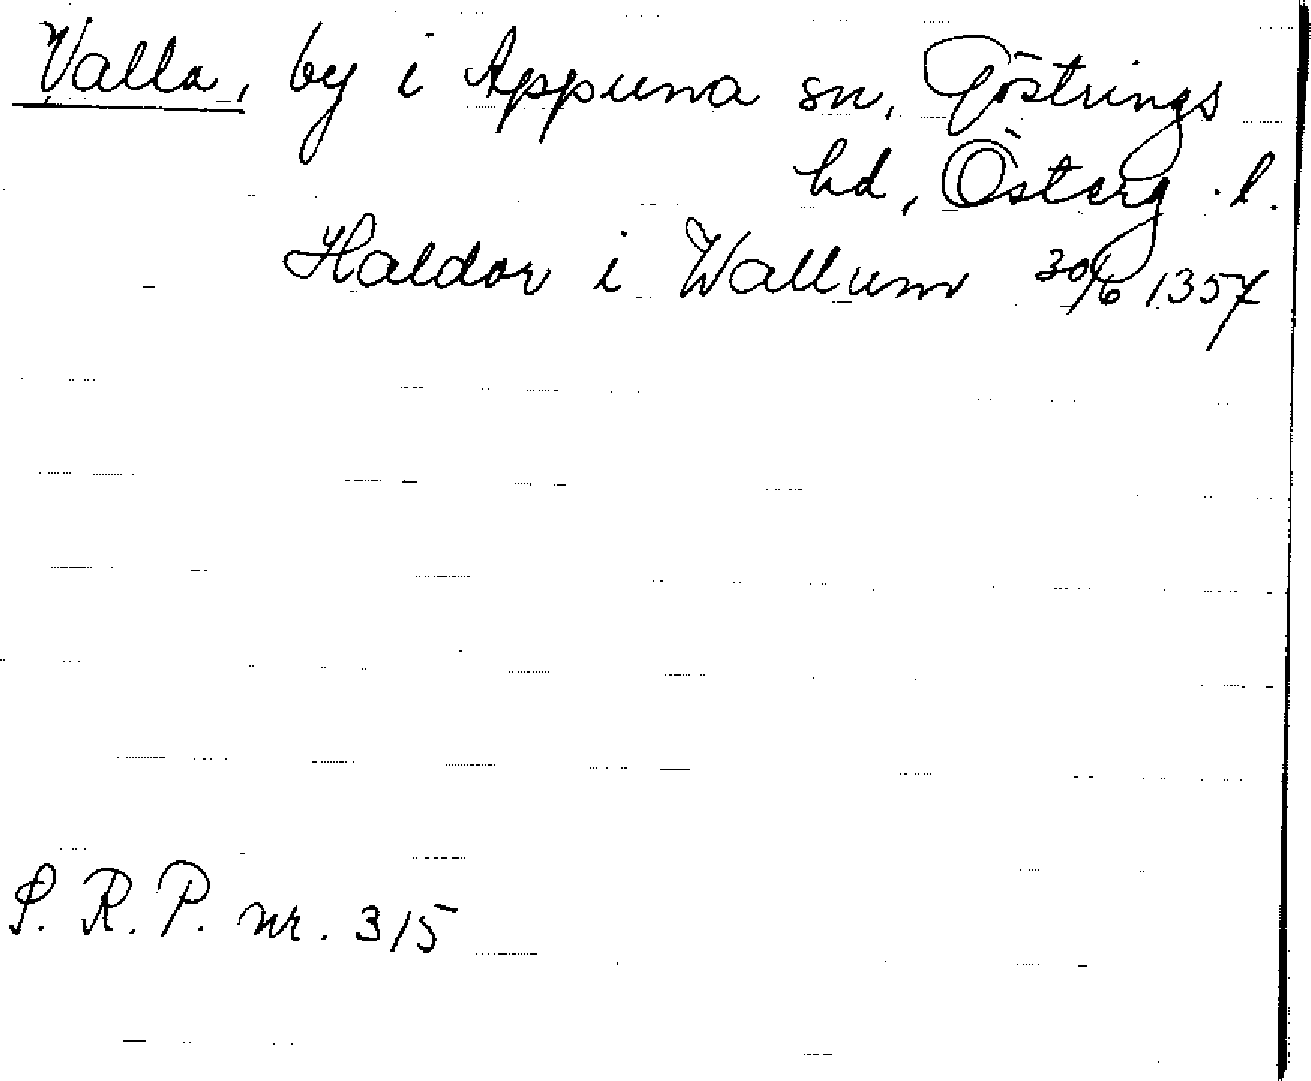 Valla, by i Appuna sn, Göstrings
hd, Österg. l.
Haldor i Wallum 30/6 1357
S. R. P. nr. 315